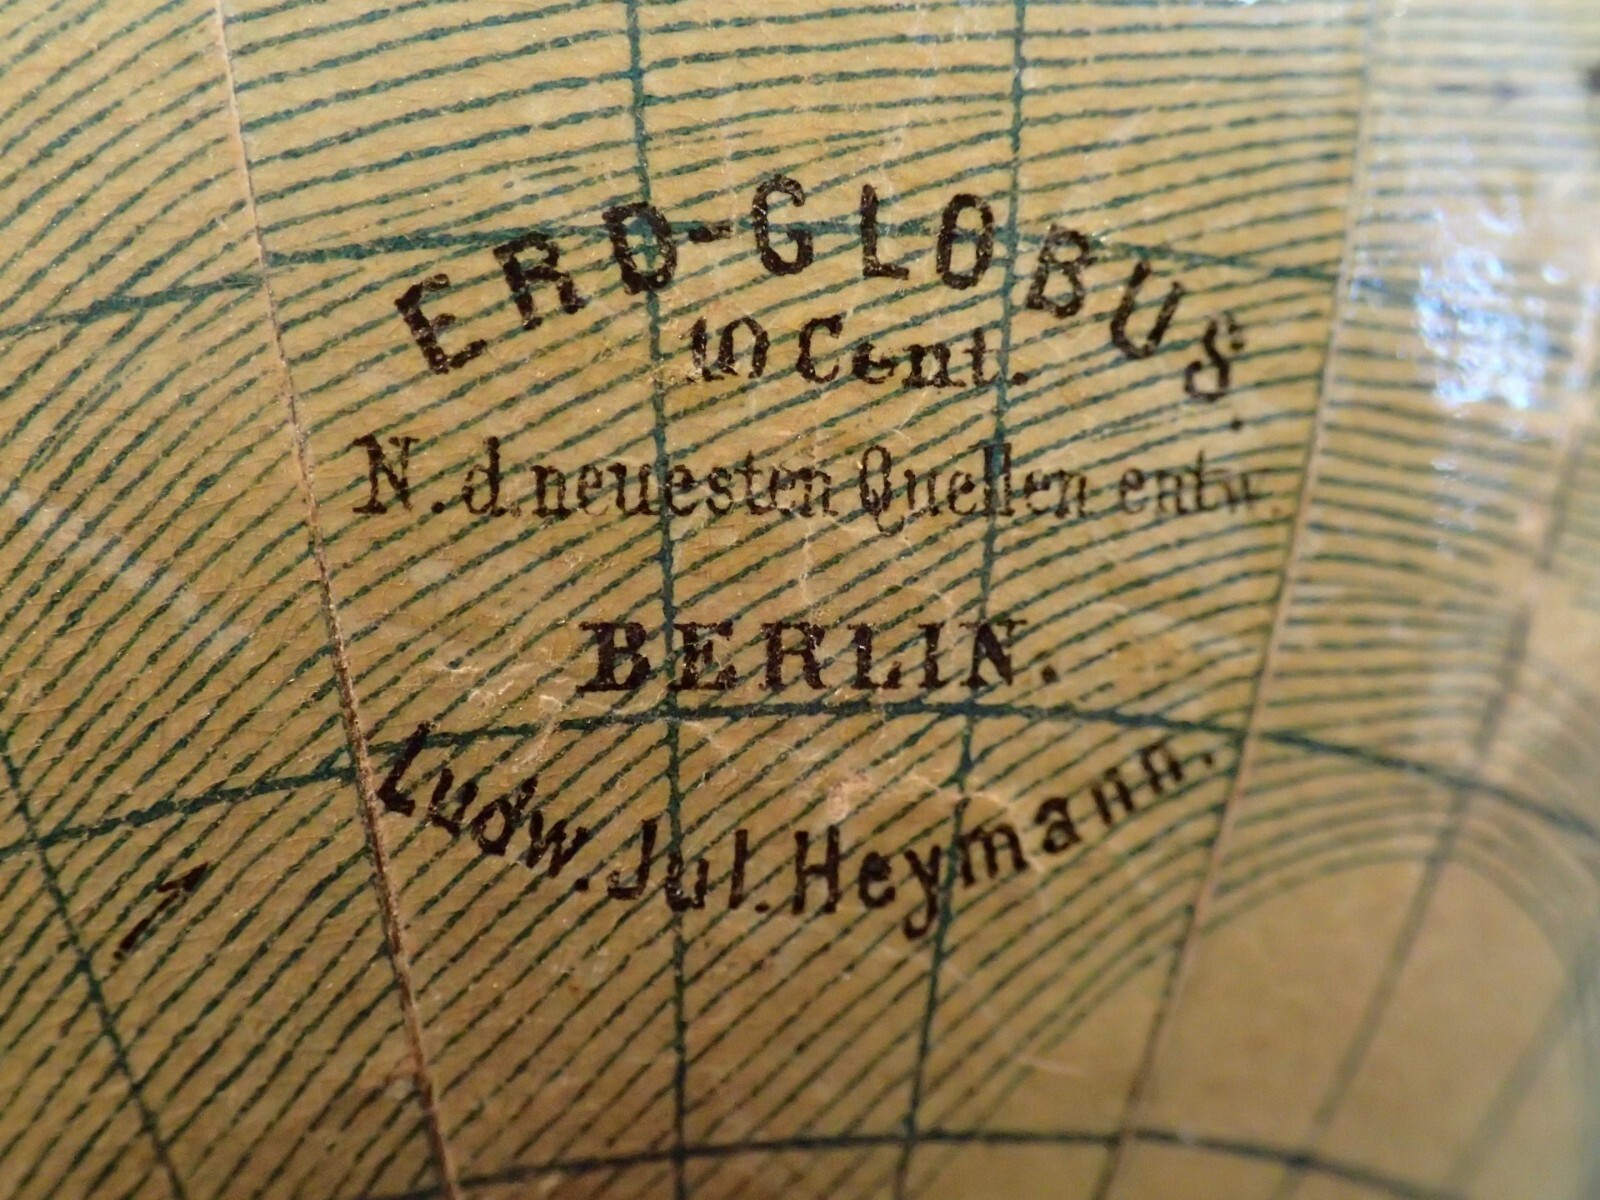 ERD-GLOBUS.
10 Cent.
N. d. neuesten Quellen entw.
BERLIN.
Ludw. Jul. Heymann.